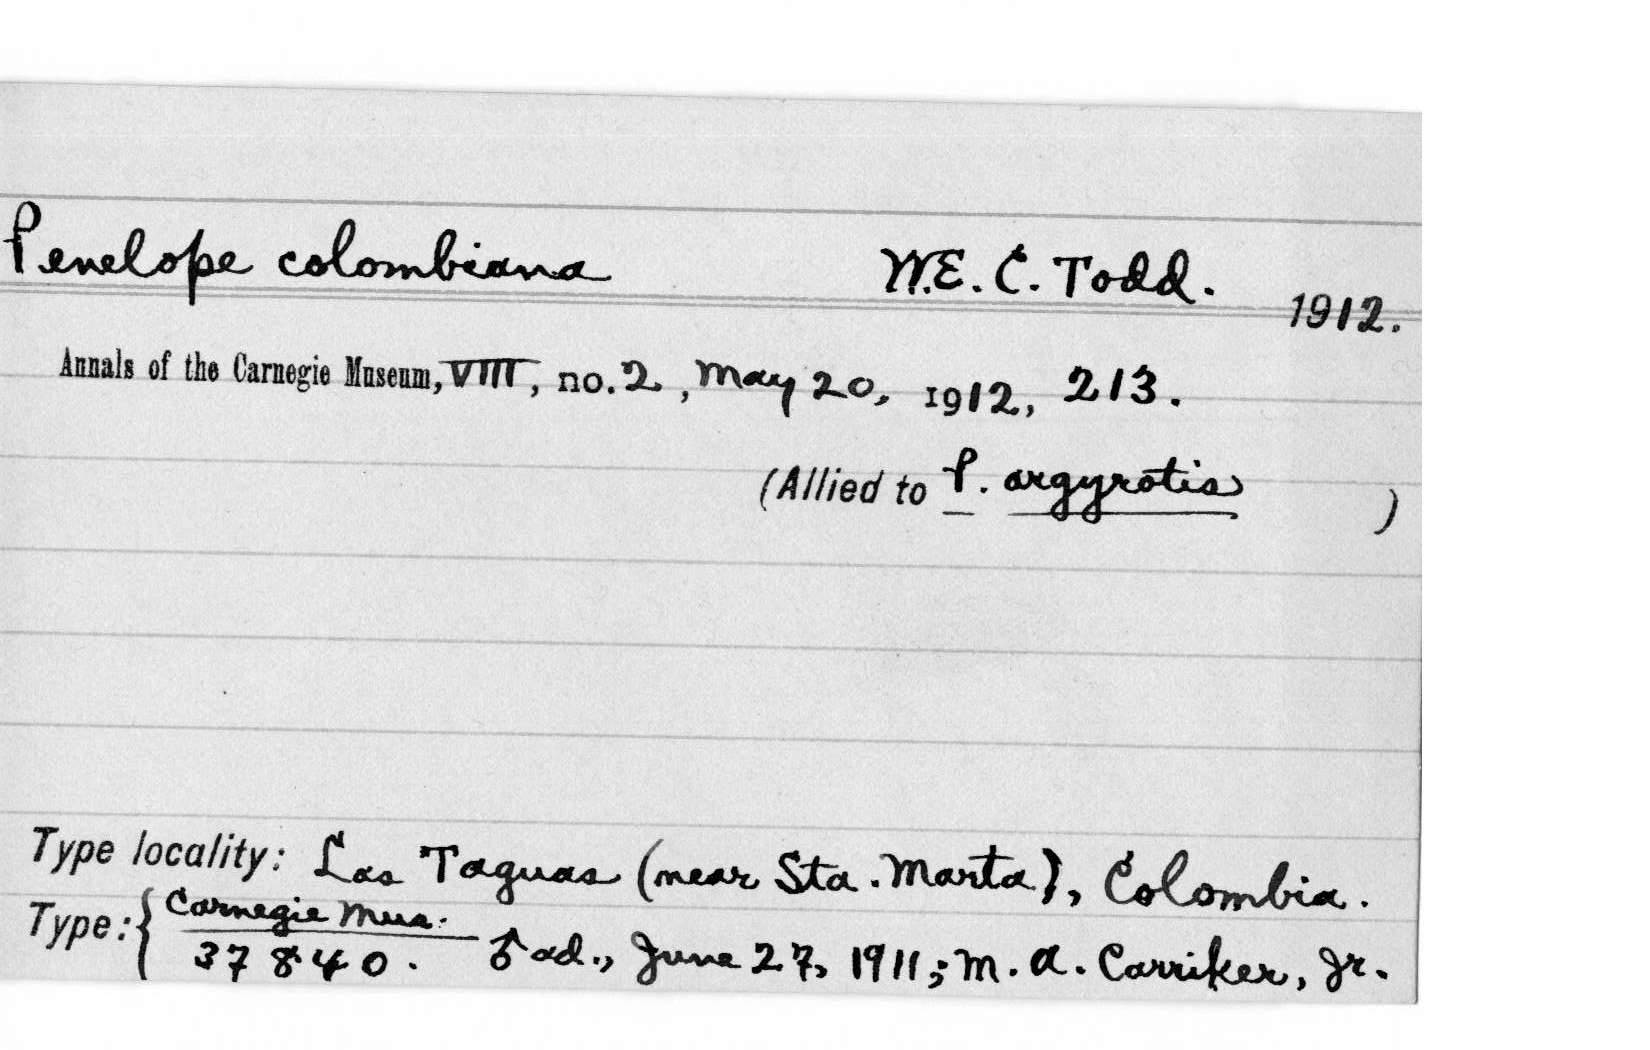 Penelope colombiana W.E.C. Todd. 1912.
Annals of the Carnegie Museum, VIII, no. 2, May 20, 1912, 213.
(Allied to P. argyrotis )
Type locality: Las Taguas (near Sta. Marta), Colombia.
Type: { Carnegie Mus.
37840. ♂ ad., June 27, 1911; M. A. Carriker, Jr.